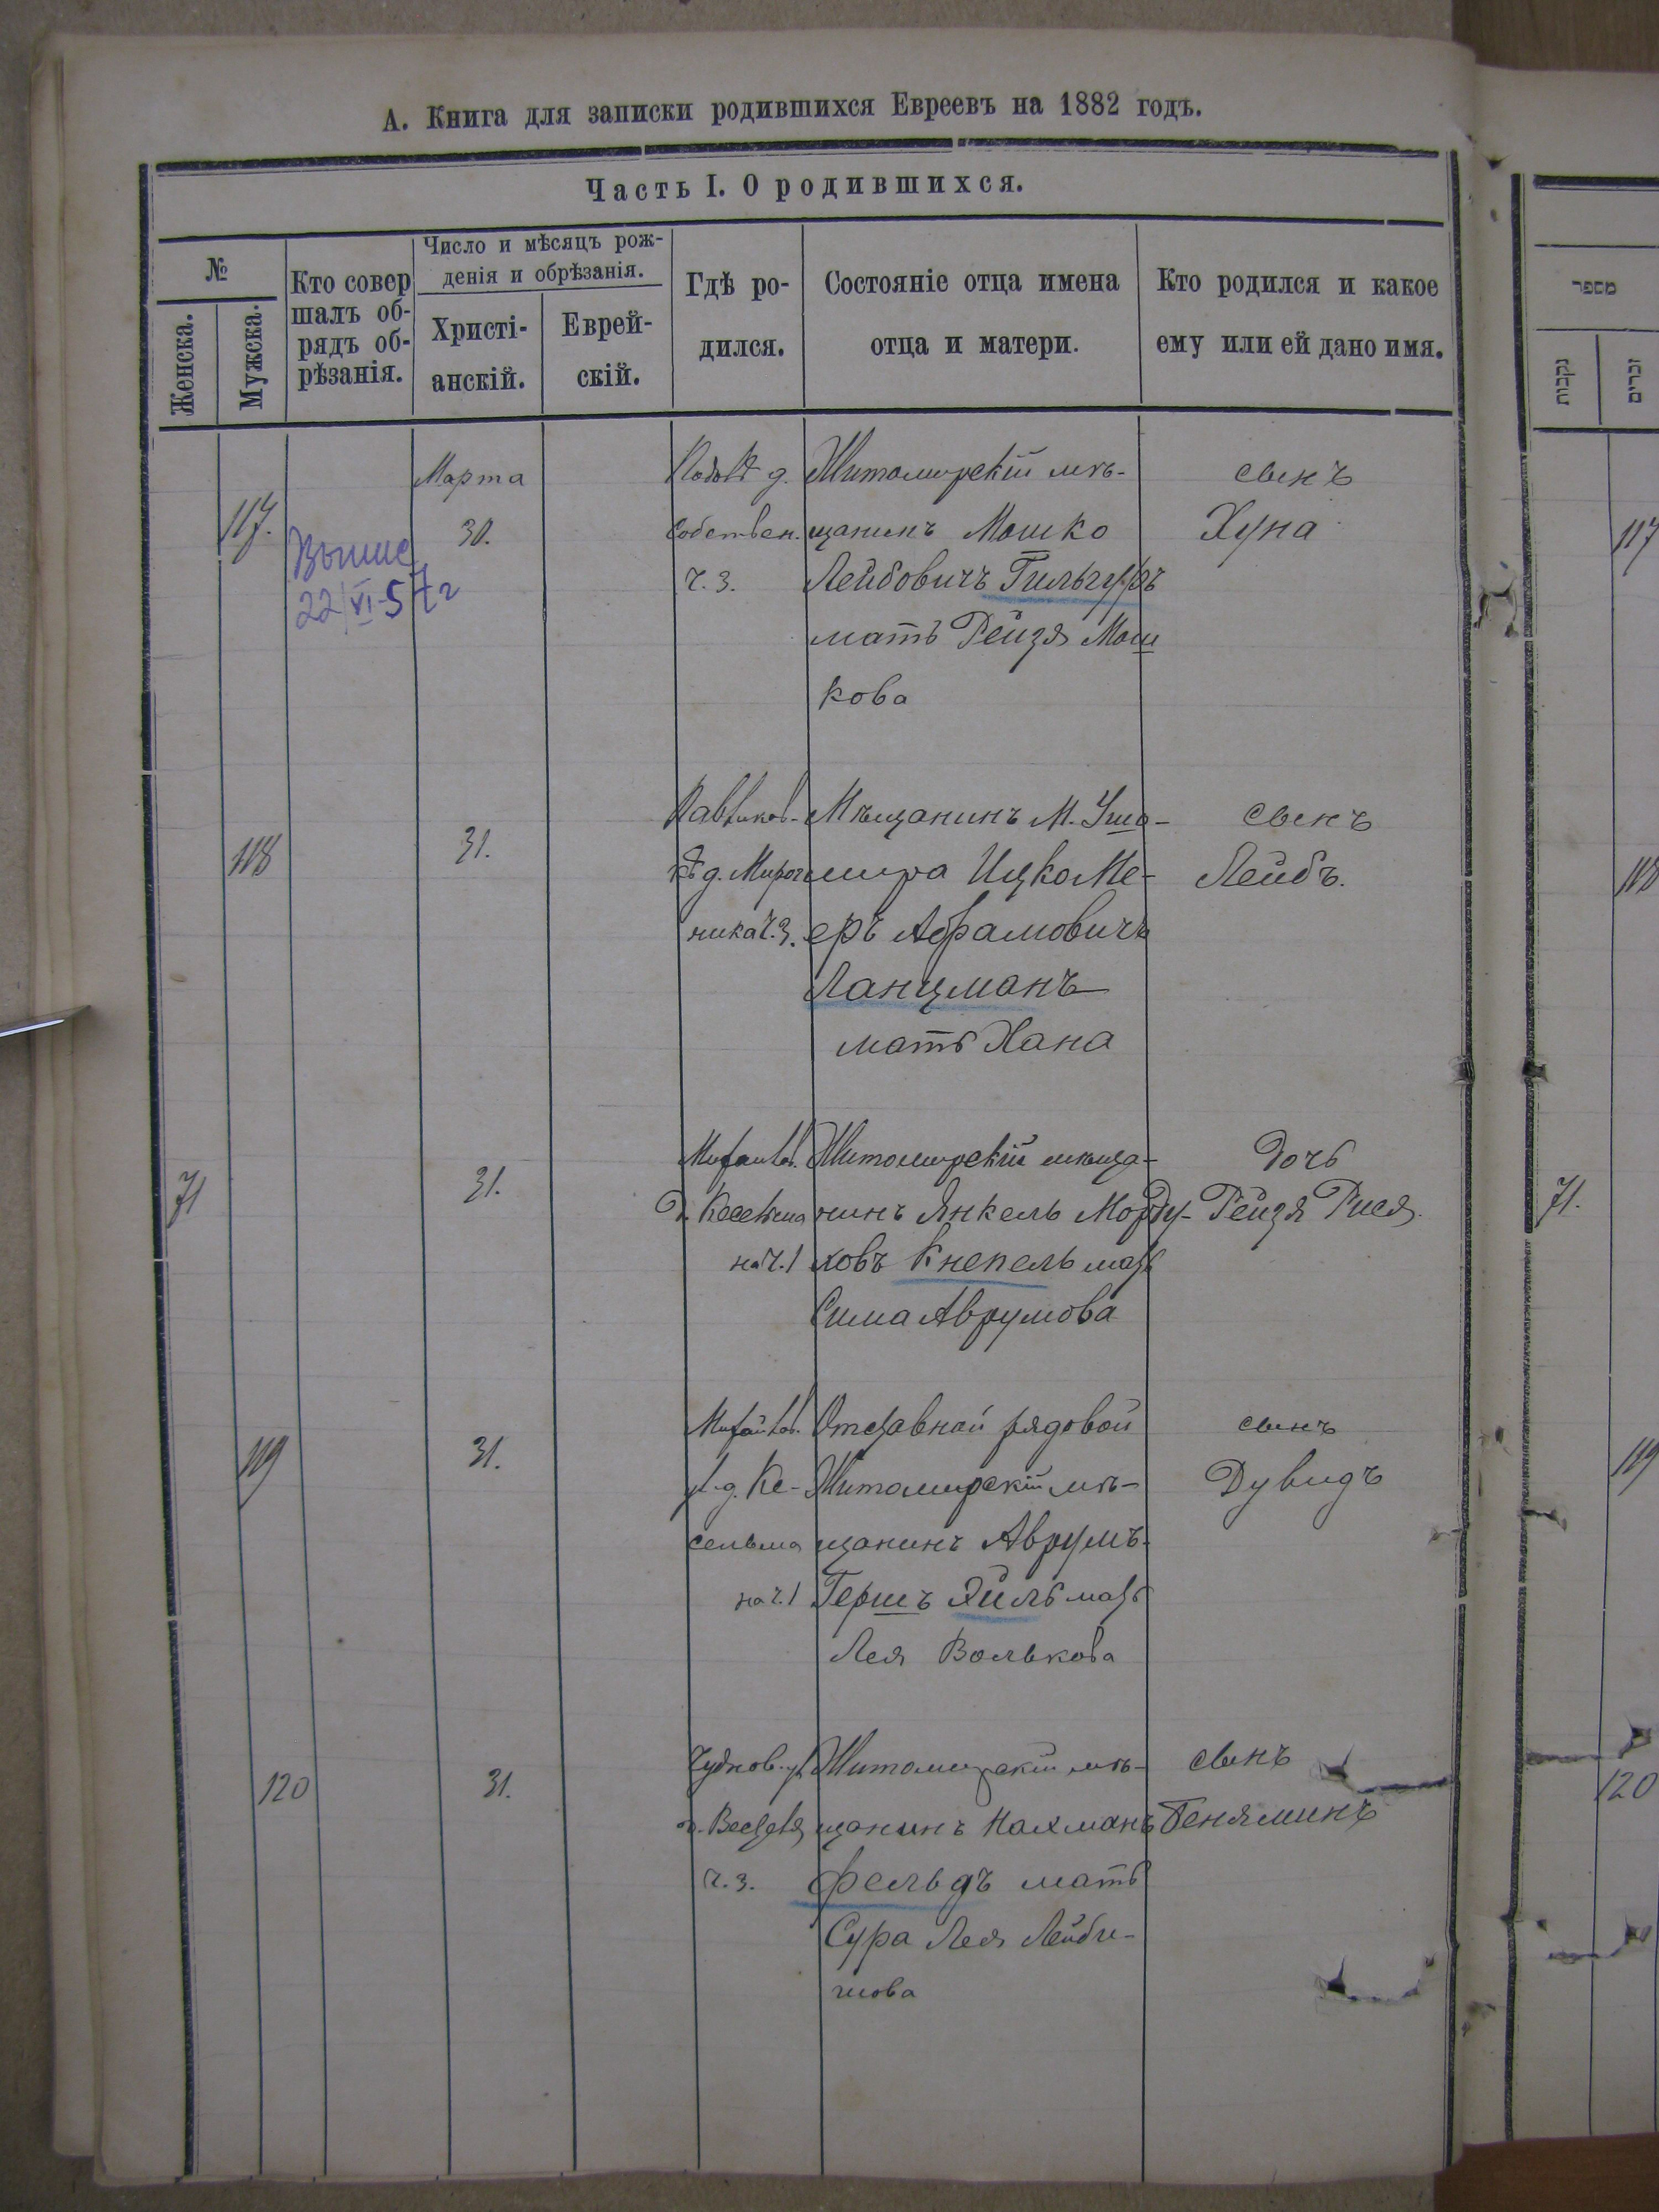 А. Книга для записки родившихся Евреевъ на 1882 годъ.
Часть I. О родившихся.
№
Женска.
Мужска.
Кто совер
шалъ об-
рядъ об-
рѣзанія.
Число и мѣсяцъ рож-
денія и обрѣзанія.
Христі-
анскій.
Еврей-
скій.
Гдѣ ро-
дился.
Состояніе отца имена
отца и матери.
Кто родился и какое
ему или ей дано имя.
117.
Выпис
22/VI-57г
Марта
30.
д.
собствен.
ч. 3.
Житомирскій мѣ-
щанинъ Мошко
Лейбовичъ
мать Рейзя Мош
кова
сынъ
Хуна
118
31.
д.
ника ч. 3.
Мѣщанинъ М. Уша-
мира Ицко Ме-
еръ Абрамовичъ
Ланцманъ
мать Хана
сынъ
Лейбъ.
71
31.
на ч. 1
Житомирскій мѣща-
нинъ Янкель Морду-
ховъ Кнепель мать
Сима Аврумова
дочь
Рейзя Рися.
119
31.
д. Ке-
сельма
на ч. 1
Отставной рядовой
Житомирскій мѣ-
щанинъ Аврумъ-
Гершъ мать
Лея Волькова
сынъ
Дувидъ
120
31.
Чуднов. у.
ч. 3.
Житомирскій мѣ-
щанинъ Нахманъ
Фельдъ мать
Сура Лея Лейби-
шова
сынъ
Беняминъ
מספר
נקבות
זכרים
117
118
71.
119
120